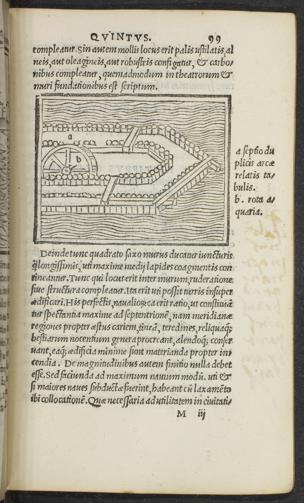 QVINTVS. 99
compleatur. Sin autem mollis locus erit palis ustilatis al
neis, aut oleagineis, aut robustris configatur, & carbo
nibus compleatur, quemadmodum in theatrorum &
muri fundationibus est scriptum.
a
b
a septio du
plicis arcæ
relatis ta
bulis.
b. rota a
quaria.
Deinde tunc quadrato saxo murus ducatur iuncturis
q̃ longissimis, uti maxime medij lapides coagmentis con
tineantur. Tunc qui locus erit inter murum, ruderatione
siue structura compleatur. Ita erit uti possit turris insuper
ædificari. His perfectis, naualiorẽ ea erit ratio, ut constituã
tur spectantia maxime ad septentrionẽ, nam meridianæ
regiones propter æstus cariem, tineã, teredines, reliquaq;
bestiarum nocentium genera procreant, alendoq; conser
uant, eaq; ædificia minime sunt materianda propter in=
cendia. De magnitudinibus autem finitio nulla debet
esse. Sed facienda ad maximum nauium modũ, uti &
si maiores naues subductæ fuerint, habeant cũ laxamẽto
ibi collocationẽ. Quæ necessaria ad utilitatem in ciuitati=
M iij